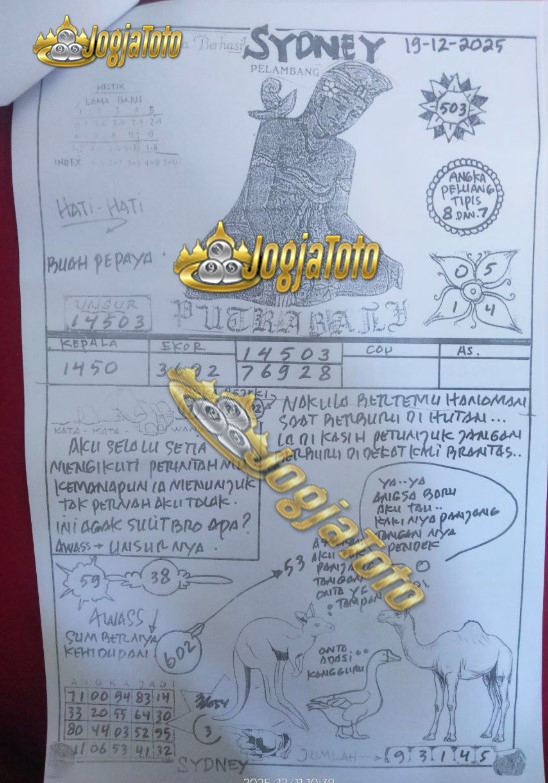 JogjaToto
Berhasil SYDNEY 19-12-2025
PELAMBANG
MISTIK
LAMA BARU
INDEX
503
ANGKA
PELUANG
TIPIS
8 DAN 7
HATI-HATI
BUAH PEPAYA
JogjaToto
0 5
1 4
UNSUR
14503
PUTRA BALI
KEPALA EKOR 14503 COP AS.
1450 76928
NAKULA BERTEMU HANOMAN
SAAT BERBURU DI HUTAN...
IA DI KASIH PETUNJUK JANGAN
BERBURU DI DEKAT KALI BRANTAS..
KATA-KATA
AKU SELALU SETIA
MENGIKUTI PERINTAH
KEMANAPUN IA MENUNJUK
TAK PERNAH AKU TOLAK.
INI AGAK SULIT BRO APA?
AWASS → UNSURNYA.
JogjaToto
YA..YA
ANGSA BARU
AKU TAU..
KAKI NYA PANJANG
TANGAN NYA
PENDEK
59 38 53
AKU
PANJANG
TANGAN
AWASS
SUMBERNYA
KEHIDUPAN
602
ONTO
ADASI
KANGGURU
ANGKA JADI
71 00 94 83 14
33 20 55 64 30
80 44 03 52 95
11 06 53 41 32
3
SYDNEY
JUMLAH 93145